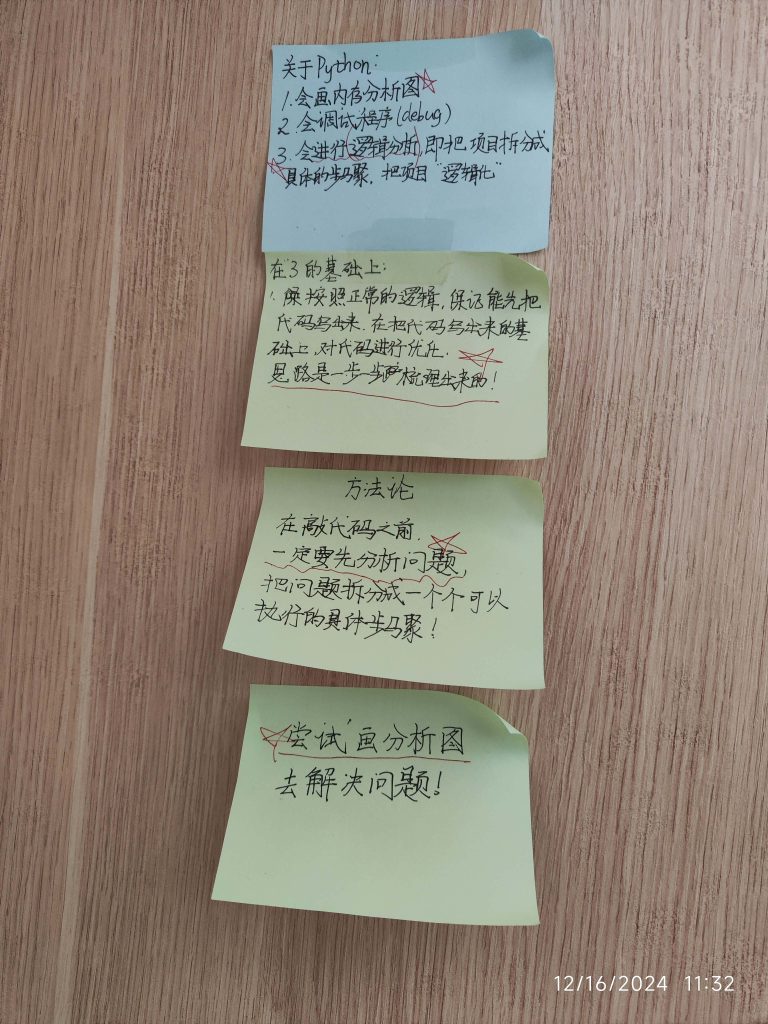 关于Python:
1.会画内存分析图
2.会调试程序(debug)
3.会进行逻辑分析,即把项目拆分成
具体的步骤,把项目"逻辑化"
在3的基础上:
1.按照正常的逻辑,保证能先把
代码写出来,在把代码写出来的基
础上,对代码进行优化.
思路是一步一步梳理出来的!
方法论
在敲代码之前,
一定要先分析问题,
把问题拆分成一个个可以
执行的具体步骤!
尝试画分析图
去解决问题!
12/16/2024 11:32